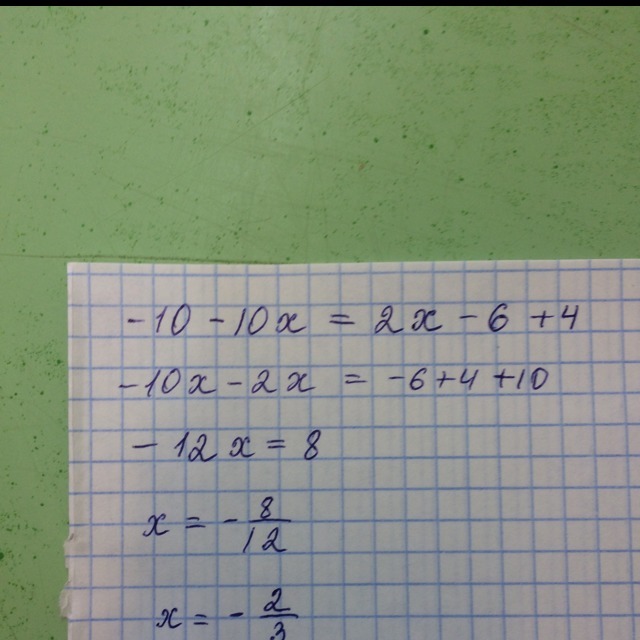 -10 - 10x = 2x - 6 + 4
-10x - 2x = -6 + 4 + 10
- 12x = 8
x = - 8/12
x = - 2/3